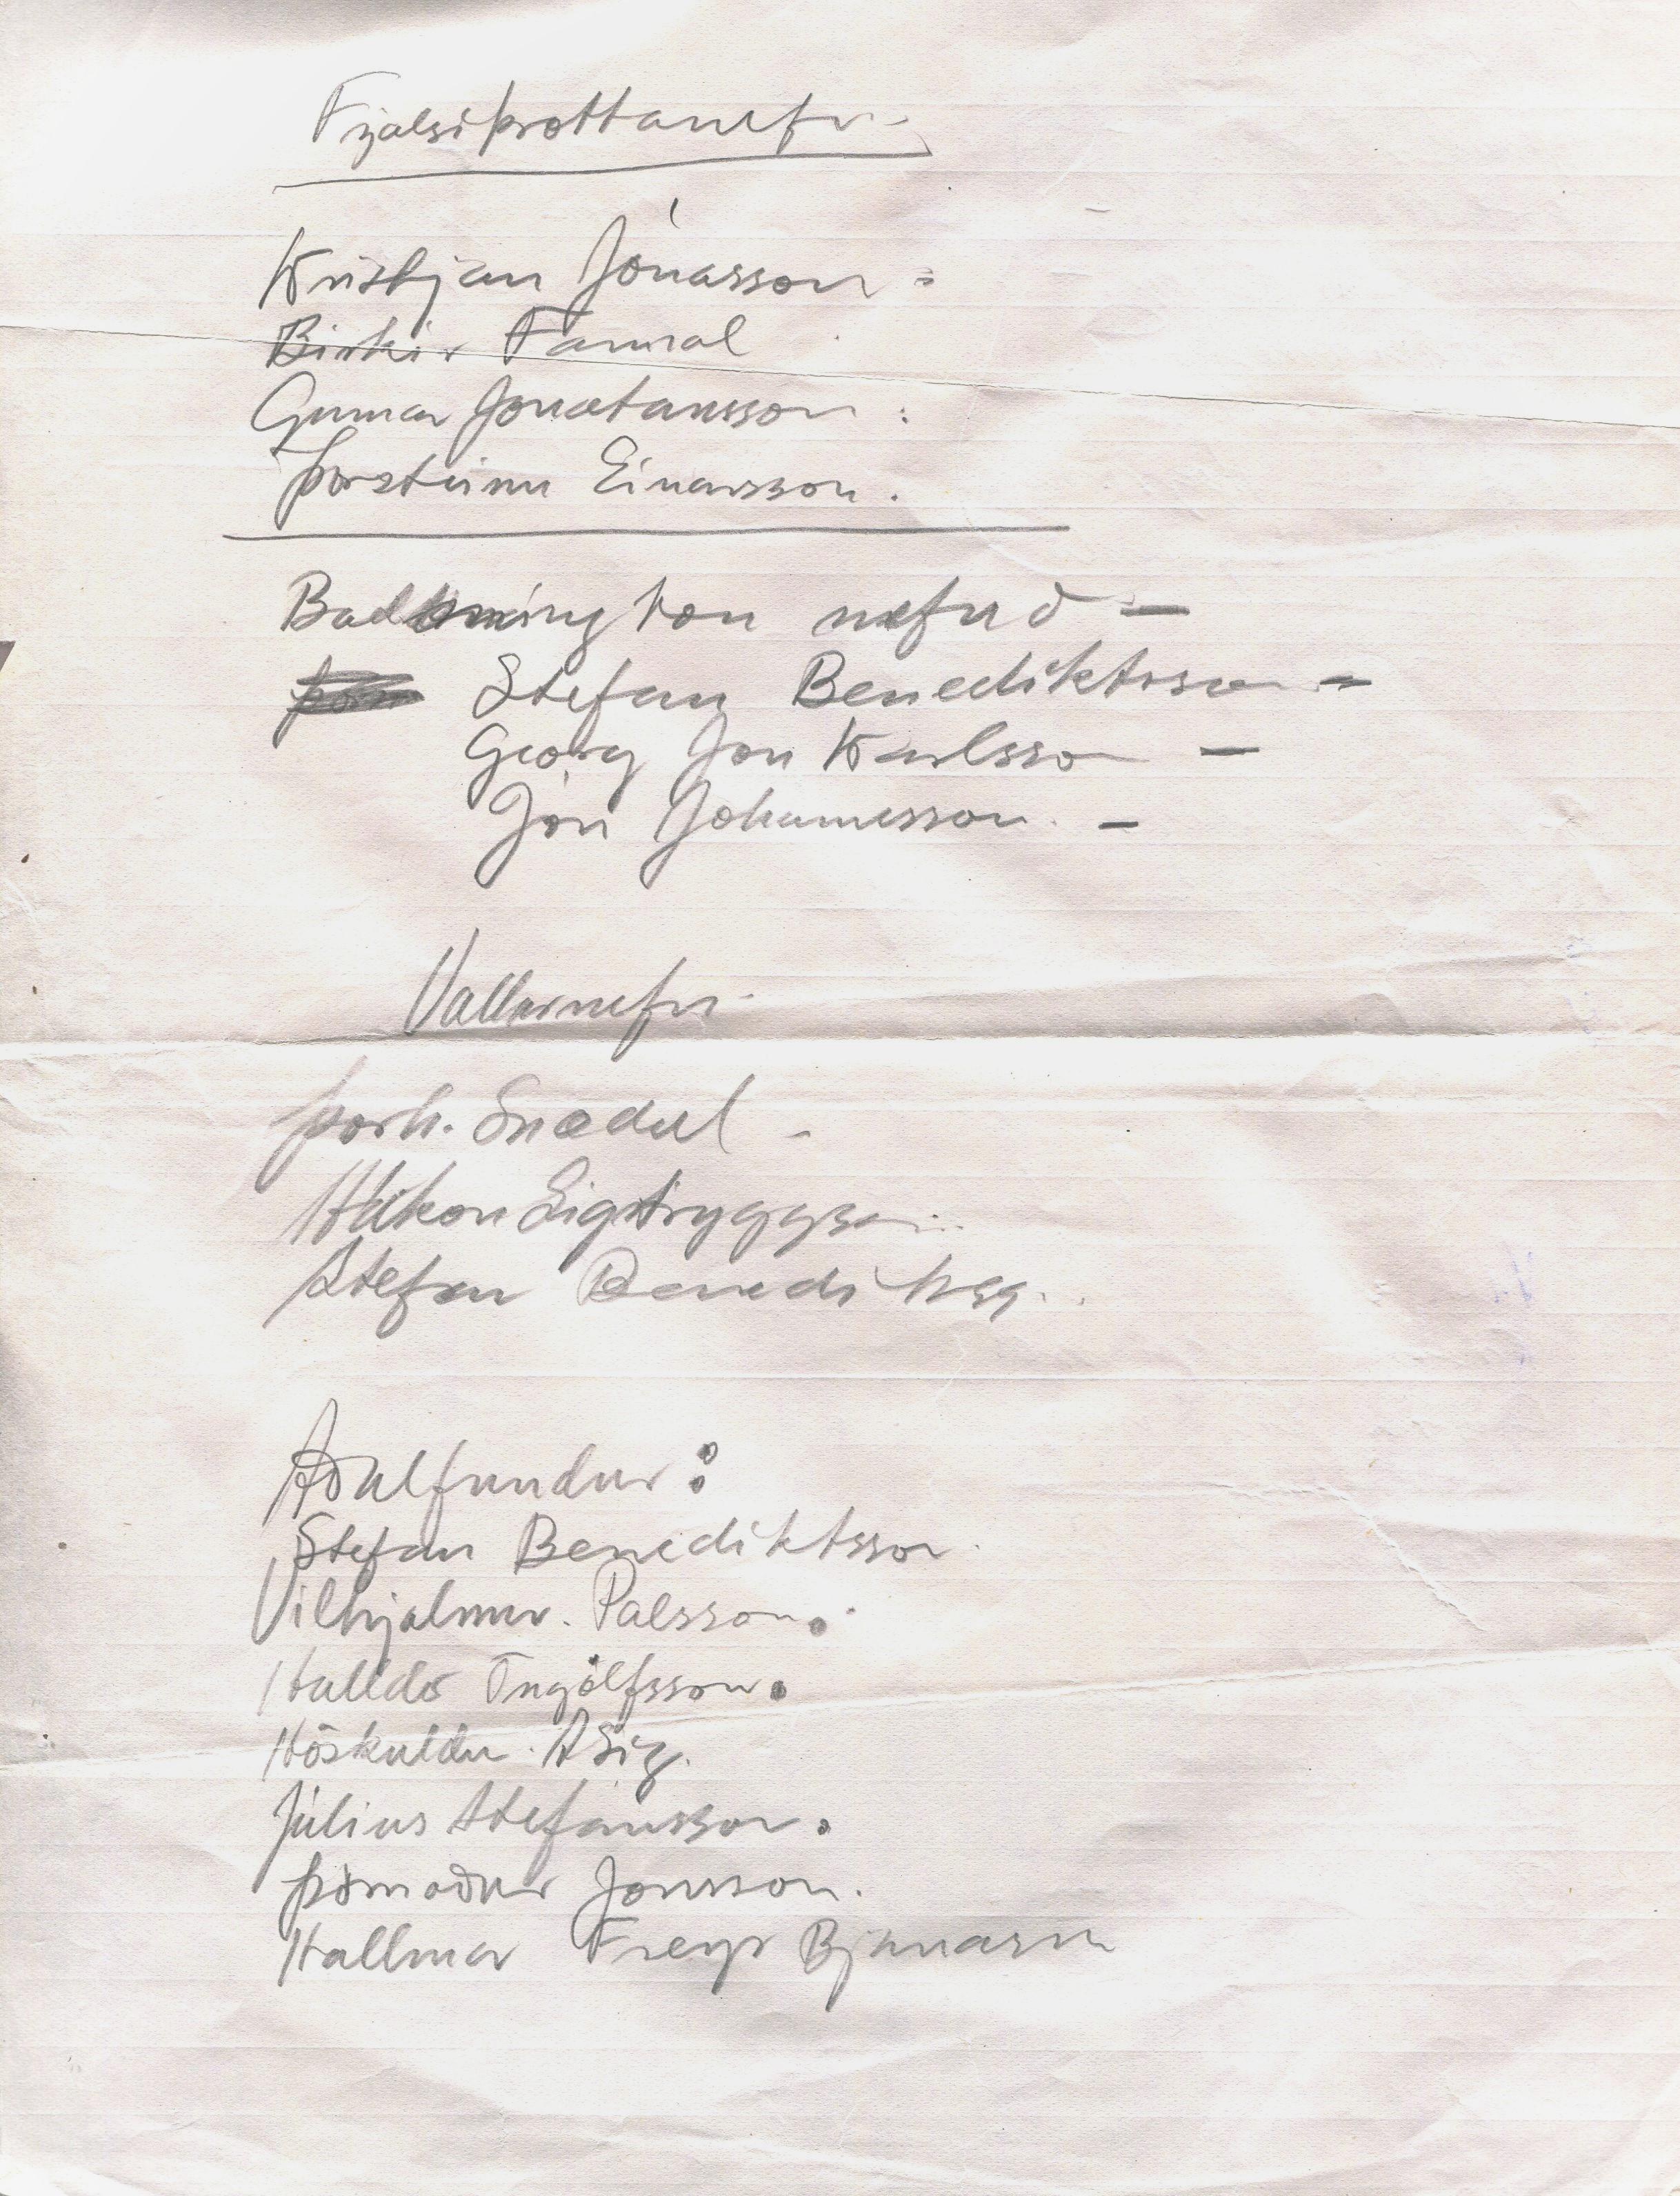 Frjalsiþrottanefn.
Kristjan Jónasson -
Birkir Fannal
Gunnar Jonatansson :
Þorsteinn Einarsson .
Badmington nefnd -
Stefan Benediktsson -
Georg Jon Karlsson -
Jón Johannesson. -
Vallarnefn.
Þorh. Snædal -
Hákon Sigtryggsson
Stefan Benediktss.
Aðalfundur :
Stefan Benediktsson.
Vilhjalmur. Palsson.
Halldó Ingólfsson.
Höskuldur. A Sig.
Júlíus Stefánsson.
Þórmoður Jonsson.
Hallmar Freyr Bjarnason